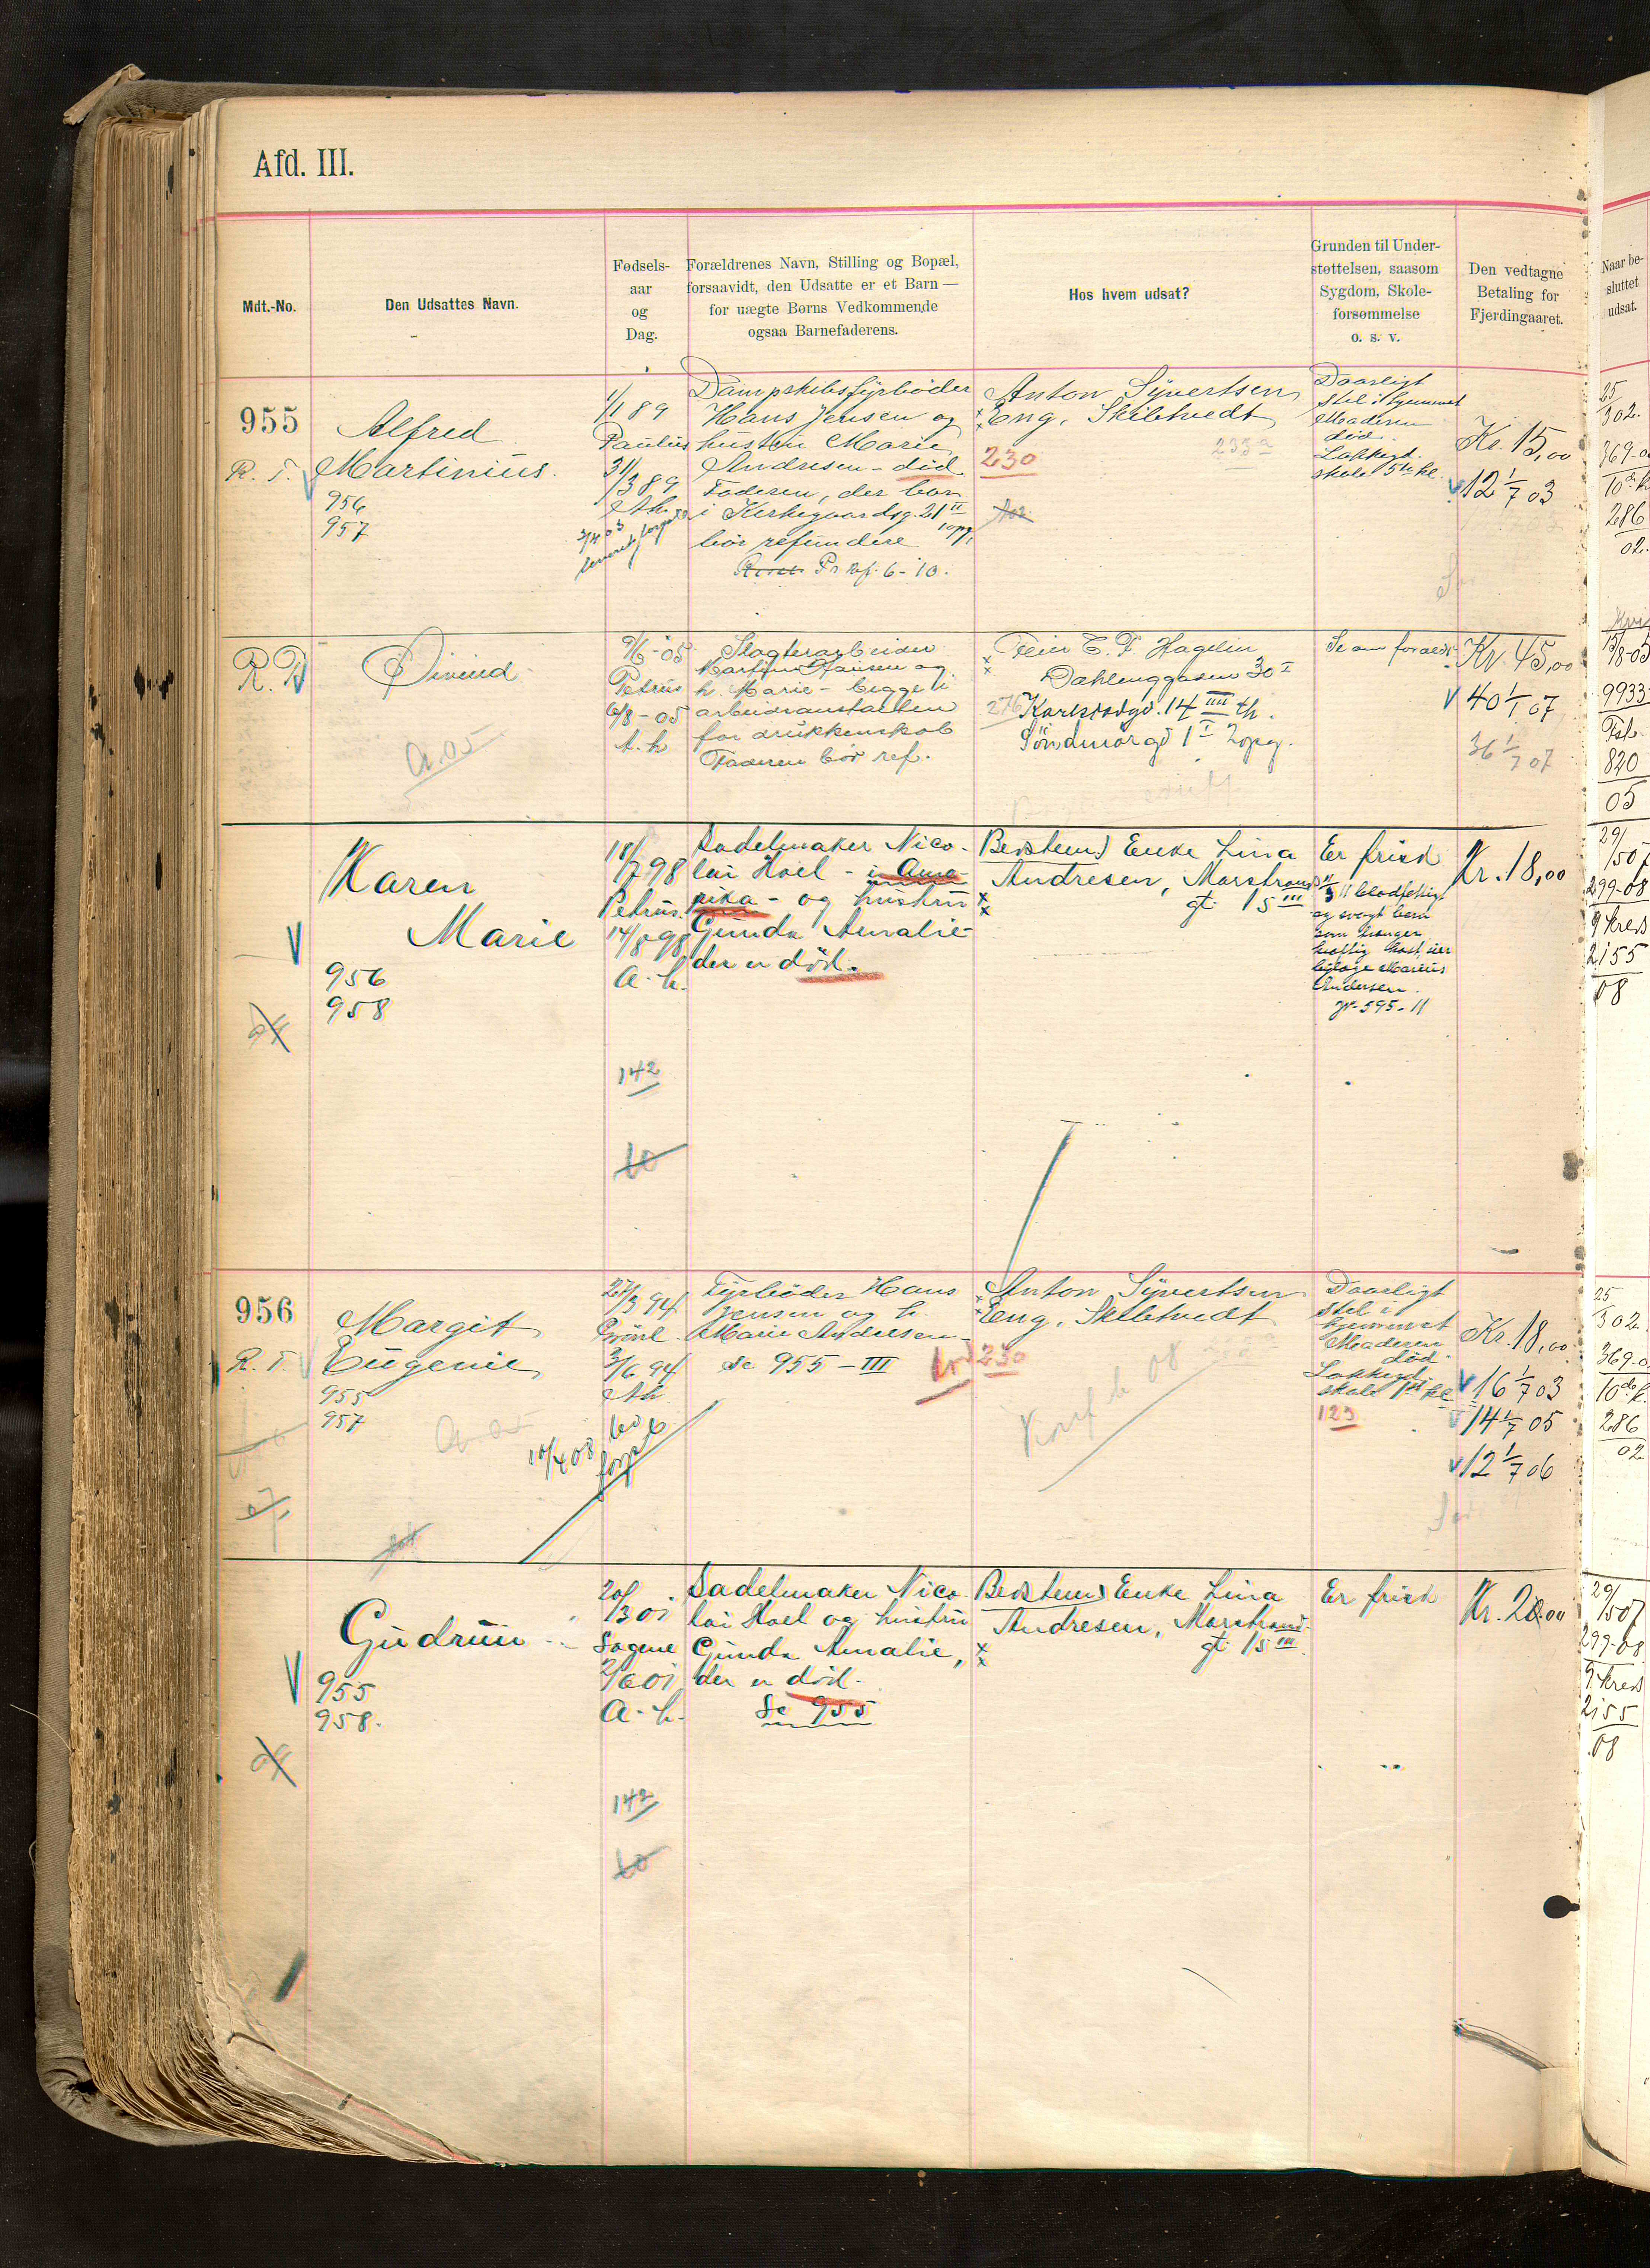 Afd. III.
Mdt.-No.
Den Udsattes Navn.
Fødsels-
aar
og
Dag.
Forældrenes Navn, Stilling og Bopæl,
forsaavidt, den Udsatte er et Barn —
for uægte Børns Vedkommende
ogsaa Barnefaderens.
Hos hvem udsat?
Grunden til Under-
støttelsen, saasom
Sygdom, Skole-
forsømmelse
o. s. v.
Den vedtagne
Betaling for
Fjerdingaaret.
Naar be-
sluttet
udsat.
955
R. T.
Alfred
Martinius.
956
957
1/1 89
Paulus
31/3 89
A.h.
Dampskibsfyrbøder
Hans Jensen og
hustru Marie
Andresen - død
Faderen, der bor
i Kirkegaardsg. 21 II
1 opg.
bør refundere
Pr ref. 6-10.
Anton Syvertsen
Eng, Skibtvedt
230
233
Daarligt
stel i hjemmet
Moderen
død.
Lakkegd.
skole 5te kl.
Kr. 15,00
12 1/7 03
25
302
369-0
10de k
286
02
R. T.
Øivind
a.05
9/6-05
Petrus
6/8-05
A.h
Slagterarbeider
Martin Hansen og
h. Marie - begge i
arbeidsanstalten
for drukkenskab
Faderen bør ref.
Feier C. F. Hagelin
Dæhlenggaden 30 I
276 Karlstadgd. 14 IIII th.
Søndmørgd 1 I 2opg.
Se om foræld.
Kr. 45,00
40 1/1 07
36 1/7 07
15/8-05
9933
Fst.
820
05
Karen
Marie
956
958
18/7 98
Petrus.
14/8 98
a.h.
142
Sadelmaker Nico-
lai Hoel - i Ame-
rika - og hustru
Gunda Amalie
der er død.
Bedstem) Enke Lina
Andresen, Marstrand-
gt. 15 III
Er frisk
blodfattigt
og svagt barn
som trænger
kraftig kost, sier
læge Marius
Andersen.
jr. 595-11
Kr. 18,00
29/1 507
299-08
9 kreds
2155
08
956
R. T.
Margit
Eugenie
955
957
27/3 94
Grønl.
3/6 94
A.h
10/4 08
Fyrbøder Hans
Jensen og h.
Marie Andresen -
se 955 - III
Anton Syvertsen
Eng, Skibtvedt
230
Konf. h 08
Daarligt
stel i
hjemmet
Moderen
død.
Lakkegd.
skole 1ste kl
123
Kr. 18,00
16 1/7 03
14 1/7 05
12 1/7 06
25
302
369-0
10de k.
286
02
Gudrun
955
958.
20/3 01
Sagene
2/6 01
a.h.
142
Sadelmaker Nico-
lai Hoel og hustru
Gunda Amalie,
der er død.
Se 955
Bedstem) Enke Lina
Andresen, Marstrand-
gt. 15 III
Er frisk
Kr. 20.00
29/1 507
299-08
9 kreds
2155
08